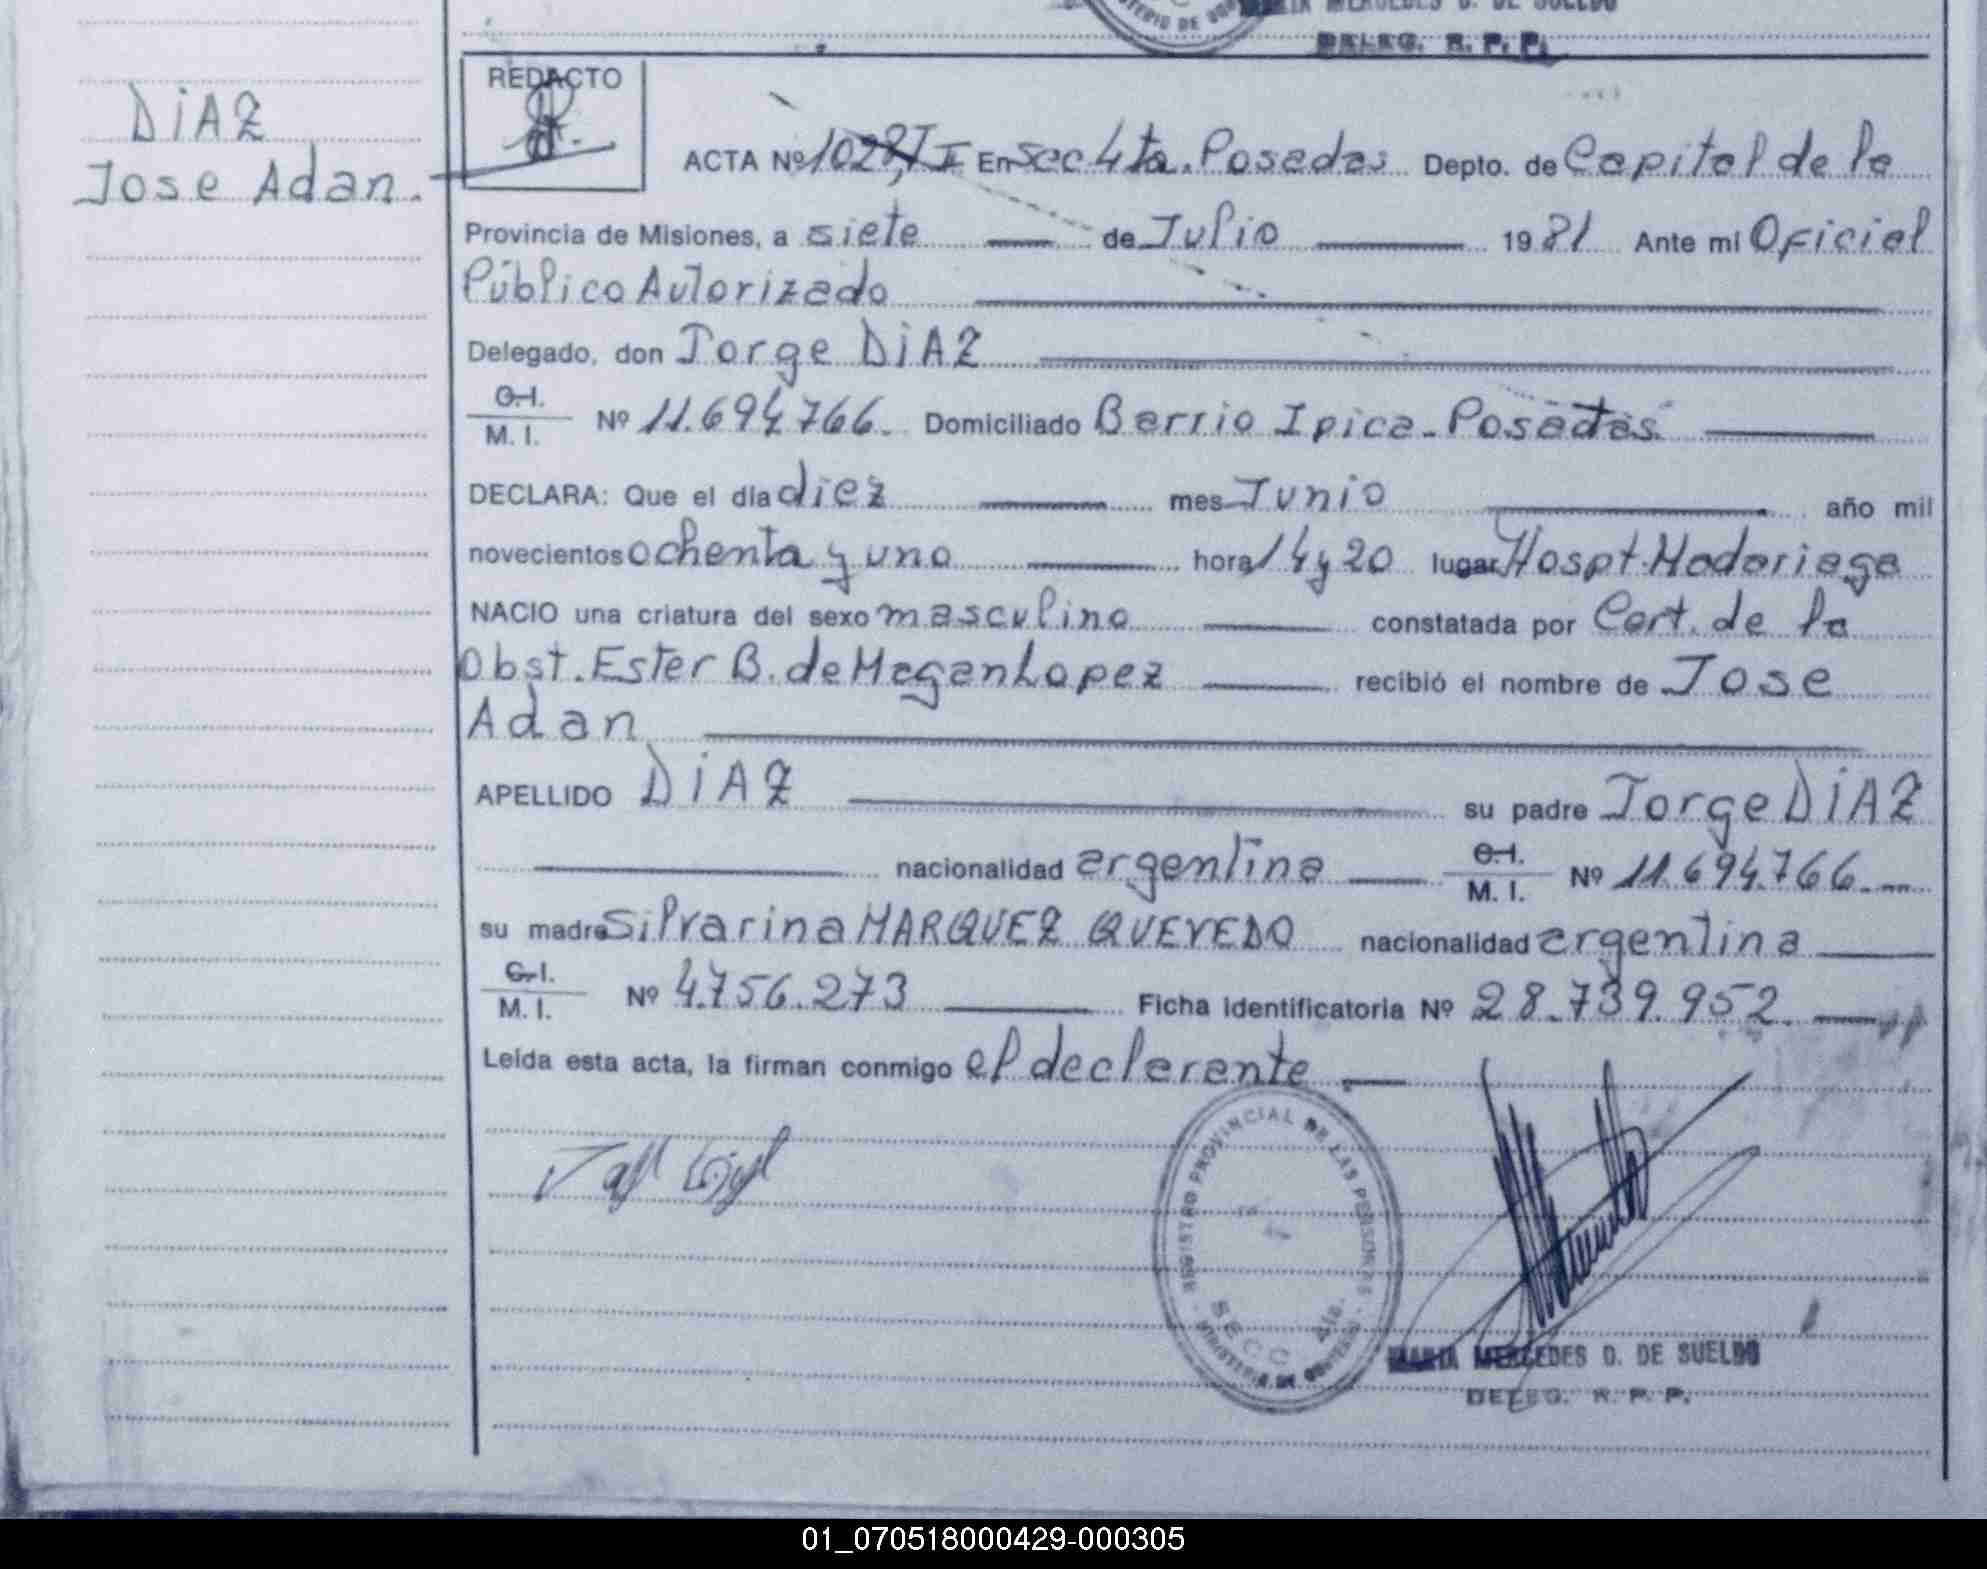 MARIA MERCEDES D. DE SUELDO
DELEG. R. P. P.
REDACTO
DiAZ
Jose Adan.
ACTA Nº 1028, T I En Sec 4ta. Posadas Depto. de Capital de la
Provincia de Misiones, a siete de Julio 1981 Ante mi Oficial
Público Autorizado
Delegado, don Jorge DiAZ
C.I.
M. I. Nº 11.694.766. Domiciliado Barrio Ipica-Posadas
DECLARA: Que el día diez mes Junio año mil
novecientos ochenta y uno hora 14 y 20 lugar Hospt. Madariaga
NACIO una criatura del sexo masculino constatada por Cert. de la
Obst. Ester B. de Magan Lopez recibió el nombre de Jose
Adan
APELLIDO DiAZ su padre Jorge DiAZ
nacionalidad argentina C.I.
M. I. Nº 11.694.766.
su madre Silvarina MARQUEZ QUEVEDO nacionalidad argentina
C.I.
M. I. Nº 4.756.273 Ficha identificatoria Nº 28.739.952.
Leída esta acta, la firman conmigo el declarante
REGISTRO PROVINCIAL DE LAS PERSONAS
SECC 4ta.
MINISTERIO DE GOBIERNO
MARIA MERCEDES D. DE SUELDO
DELEG. R. P. P.
01_070518000429-000305